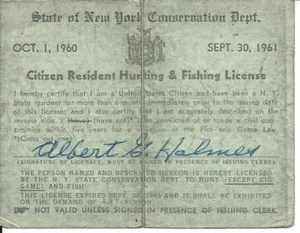 State of New York Conservation Dept.
OCT. 1, 1960 SEPT. 30, 1961
Citizen Resident Hunting & Fishing License
I hereby certify that I am a United States Citizen and have been a N. Y.
State resident for more than 6 months immediately prior to the issuing date
of this license and I also certify that I am accurately described on the
reverse side. I have not been convicted of or made a civil com-
promise within five years for a violation of the Fish and Game Law
Albert G Holmes
(SIGNATURE OF LICENSEE, MUST BE SIGNED IN PRESENCE OF ISSUING CLERK)
THE PERSON NAMED AND DESCRIBED HEREON IS HEREBY LICENSED
BY THE N. Y. STATE CONSERVATION DEPT. TO HUNT (EXCEPT BIG
GAME) AND FISH
THIS LICENSE EXPIRES SEPT. 30, 1961 AND IT SHALL BE EXHIBITED
ON THE DEMAND OF ANY PERSON.
NOT VALID UNLESS SIGNED IN PRESENCE OF ISSUING CLERK.